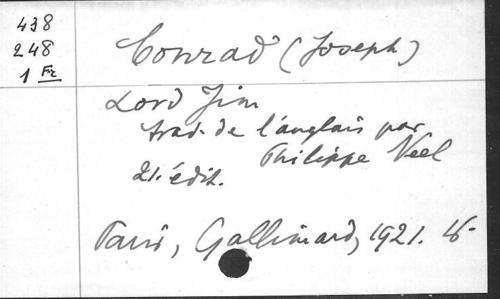 438
248
1 Fr
Conrad (Joseph)
Lord Jim
trad. de l'anglais par
Philippe Neel
21. édit.
Paris, Gallimard, 1921.